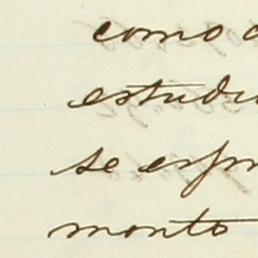 como
estudi
se espr
monto